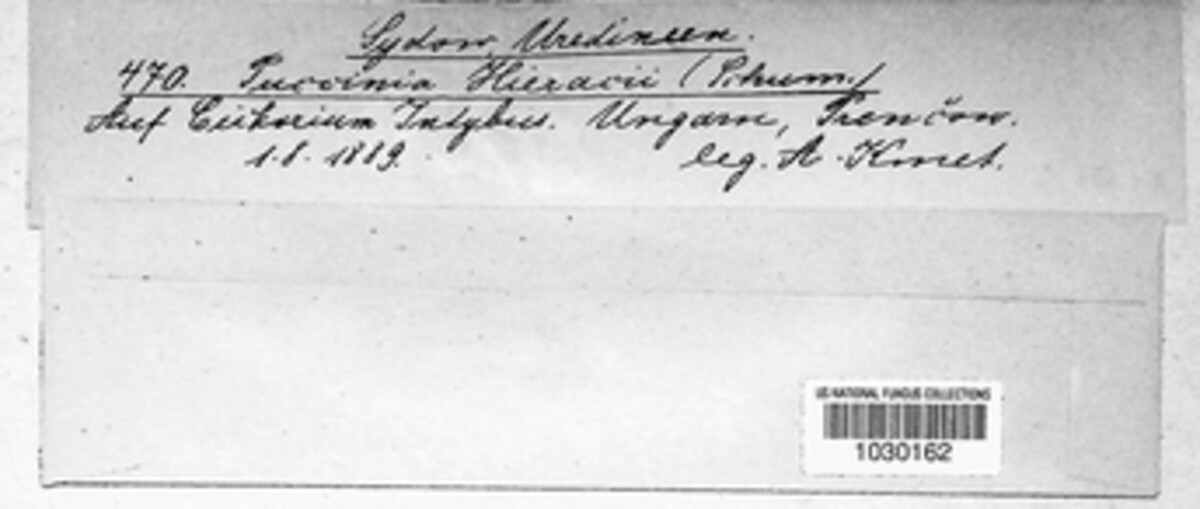 Sydow, Uredineen.
470. Puccinia Hieracii (Schum.)
Auf Cichorium Intybus. Ungarn, Prenčow.
1.8.1889. leg. A. Kmet.
US NATIONAL FUNGUS COLLECTIONS
1030162